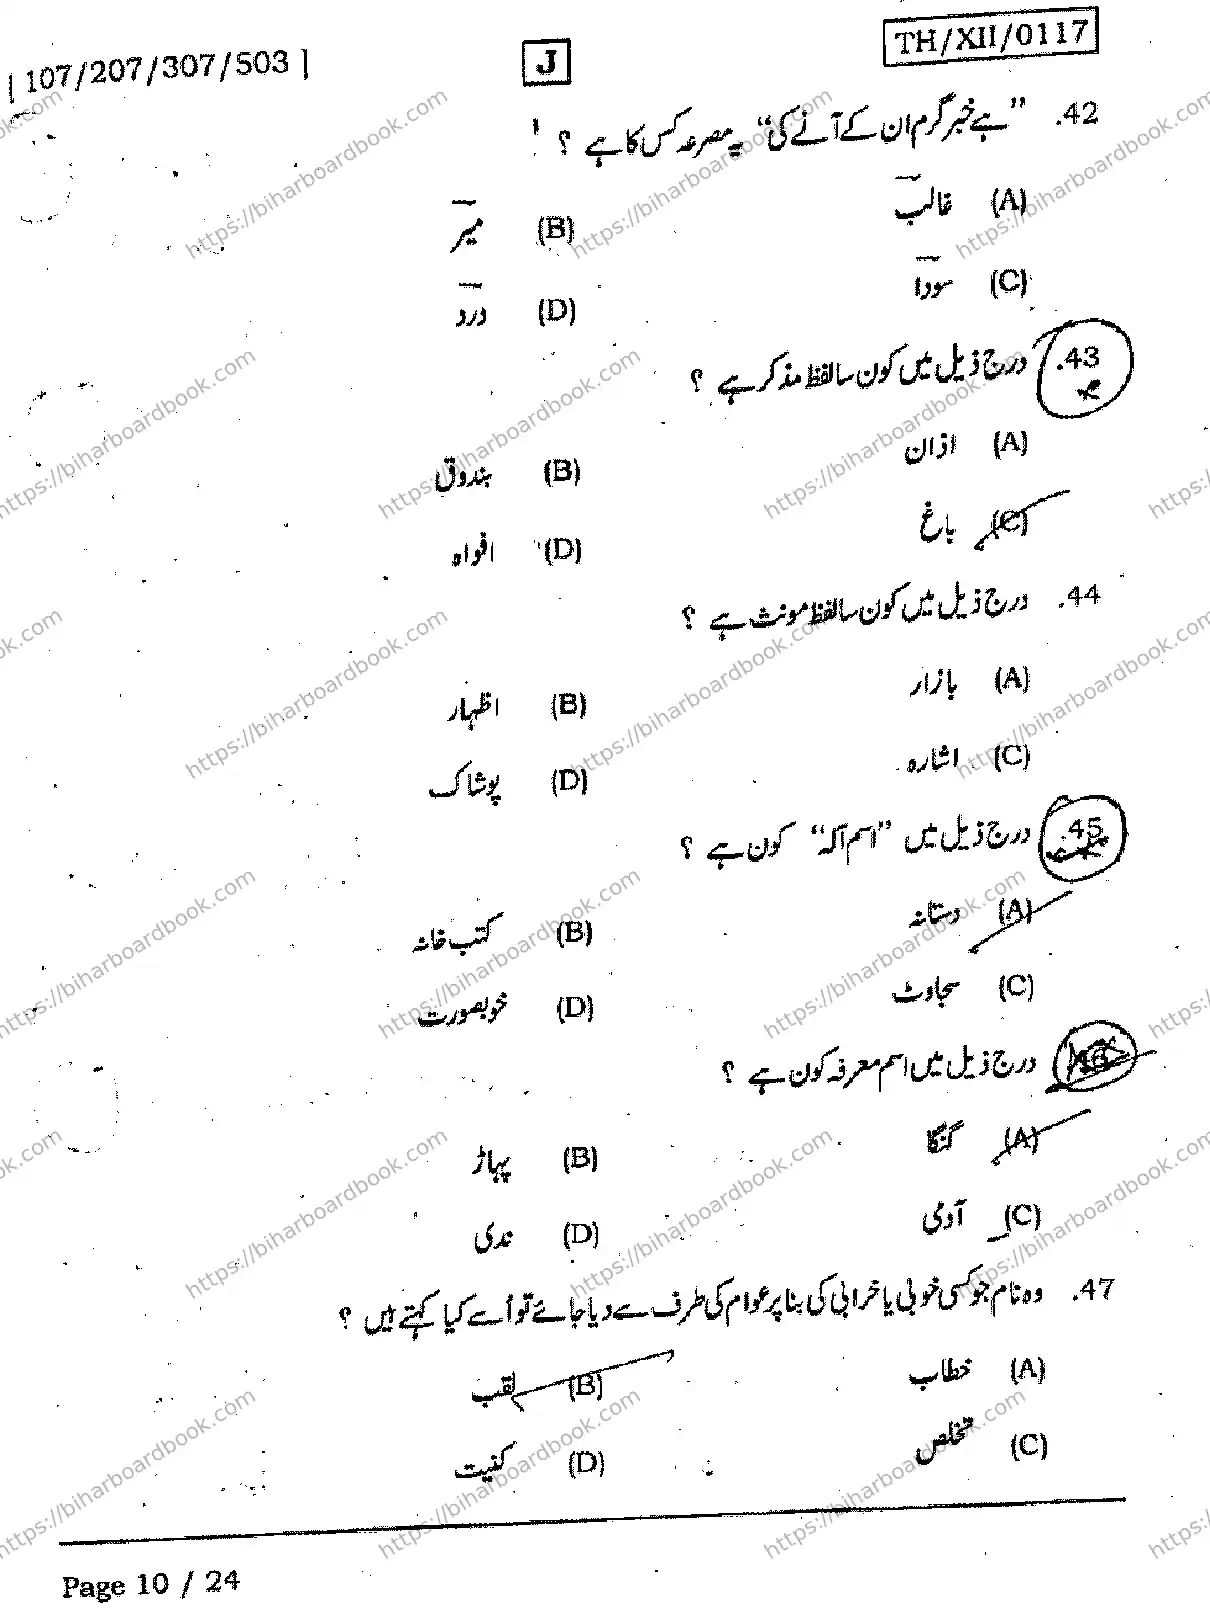 | 107/207/307/503 |
J
TH/XII/0117
42. ”ہے خبر گرم ان کے آنے کی“ یہ مصرعہ کس کا ہے ؟
(A) غالب
(B) میر
(C) سودا
(D) درد
43. درج ذیل میں کون سا لفظ مذکر ہے ؟
(A) اذان
(B) بندوق
(C) باغ
(D) افواہ
44. درج ذیل میں کون سا لفظ مونث ہے ؟
(A) بازار
(B) اظہار
(C) اشارہ
(D) پوشاک
45. درج ذیل میں ”اسم آلہ“ کون ہے ؟
(A) دستانہ
(B) کتب خانہ
(C) سجاوٹ
(D) خوبصورت
درج ذیل میں اسم معرفہ کون ہے ؟
(A) گنگا
(B) پہاڑ
(C) آدمی
(D) ندی
47. وہ نام جو کسی خوبی یا خرابی کی بنا پر عوام کی طرف سے دیا جائے تو اُسے کیا کہتے ہیں ؟
(A) خطاب
(B) لقب
(C) تخلص
(D) کنیت
Page 10 / 24
https://biharboardbook.com